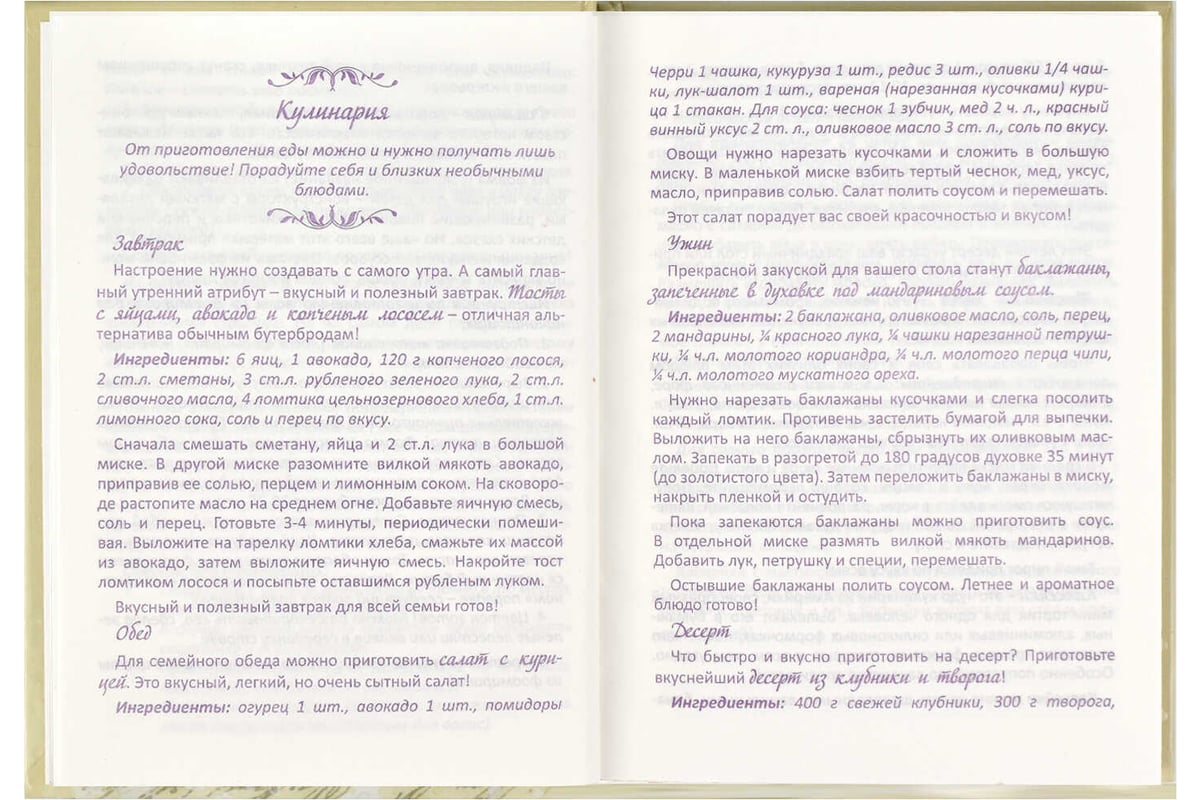 Кулинария
От приготовления еды можно и нужно получать лишь
удовольствие! Порадуйте себя и близких необычными
блюдами.
Завтрак
Настроение нужно создавать с самого утра. А самый глав-
ный утренний атрибут – вкусный и полезный завтрак. Тосты
с яйцами, авокадо и копченым лососем – отличная аль-
тернатива обычным бутербродам!
Ингредиенты: 6 яиц, 1 авокадо, 120 г копченого лосося,
2 ст.л. сметаны, 3 ст.л. рубленого зеленого лука, 2 ст.л.
сливочного масла, 4 ломтика цельнозернового хлеба, 1 ст.л.
лимонного сока, соль и перец по вкусу.
Сначала смешать сметану, яйца и 2 ст.л. лука в большой
миске. В другой миске разомните вилкой мякоть авокадо,
приправив ее солью, перцем и лимонным соком. На сковоро-
де растопите масло на среднем огне. Добавьте яичную смесь,
соль и перец. Готовьте 3-4 минуты, периодически помеши-
вая. Выложите на тарелку ломтики хлеба, смажьте их массой
из авокадо, затем выложите яичную смесь. Накройте тост
ломтиком лосося и посыпьте оставшимся рубленым луком.
Вкусный и полезный завтрак для всей семьи готов!
Обед
Для семейного обеда можно приготовить салат с кури-
цей. Это вкусный, легкий, но очень сытный салат!
Ингредиенты: огурец 1 шт., авокадо 1 шт., помидоры
Черри 1 чашка, кукуруза 1 шт., редис 3 шт., оливки 1/4 чаш-
ки, лук-шалот 1 шт., вареная (нарезанная кусочками) кури-
ца 1 стакан. Для соуса: чеснок 1 зубчик, мед 2 ч. л., красный
винный уксус 2 ст. л., оливковое масло 3 ст. л., соль по вкусу.
Овощи нужно нарезать кусочками и сложить в большую
миску. В маленькой миске взбить тертый чеснок, мед, уксус,
масло, приправив солью. Салат полить соусом и перемешать.
Этот салат порадует вас своей красочностью и вкусом!
Ужин
Прекрасной закуской для вашего стола станут баклажаны,
запеченные в духовке под мандариновым соусом.
Ингредиенты: 2 баклажана, оливковое масло, соль, перец,
2 мандарины, ¼ красного лука, ¼ чашки нарезанной петруш-
ки, ¼ ч.л. молотого кориандра, ¼ ч.л. молотого перца чили,
¼ ч.л. молотого мускатного ореха.
Нужно нарезать баклажаны кусочками и слегка посолить
каждый ломтик. Противень застелить бумагой для выпечки.
Выложить на него баклажаны, сбрызнуть их оливковым мас-
лом. Запекать в разогретой до 180 градусов духовке 35 минут
(до золотистого цвета). Затем переложить баклажаны в миску,
накрыть пленкой и остудить.
Пока запекаются баклажаны можно приготовить соус.
В отдельной миске размять вилкой мякоть мандаринов.
Добавить лук, петрушку и специи, перемешать.
Остывшие баклажаны полить соусом. Летнее и ароматное
блюдо готово!
Десерт
Что быстро и вкусно приготовить на десерт? Приготовьте
вкуснейший десерт из клубники и творога!
Ингредиенты: 400 г свежей клубники, 300 г творога,